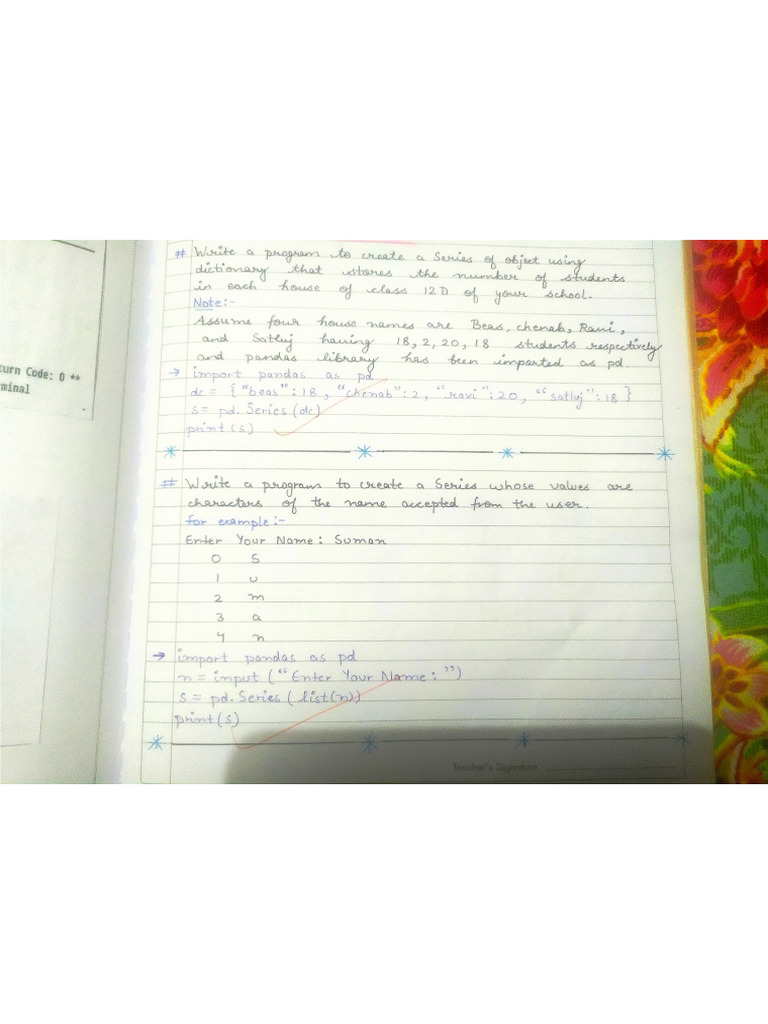 turn Code: 0 **
minal
# Write a program to create a Series of object using
dictionary that stores the number of students
in each house of class 12 D of your school.
Note:-
Assume four house names are Beas, chenab, Ravi,
and Satluj having 18, 2, 20, 18 students respectively
and pandas library has been imported as pd.
→ import pandas as pd
dc = {"beas": 18, "chenab": 2, "ravi": 20, "satluj": 18}
s = pd. Series (dc)
print (s)
# Write a program to create a Series whose values are
characters of the name accepted from the user.
for example:-
Enter Your Name: Suman
0 S
1 u
2 m
3 a
4 n
→ import pandas as pd
n = input ("Enter Your Name: ")
s = pd. Series ( list(n))
print (s)
Teacher's Signature